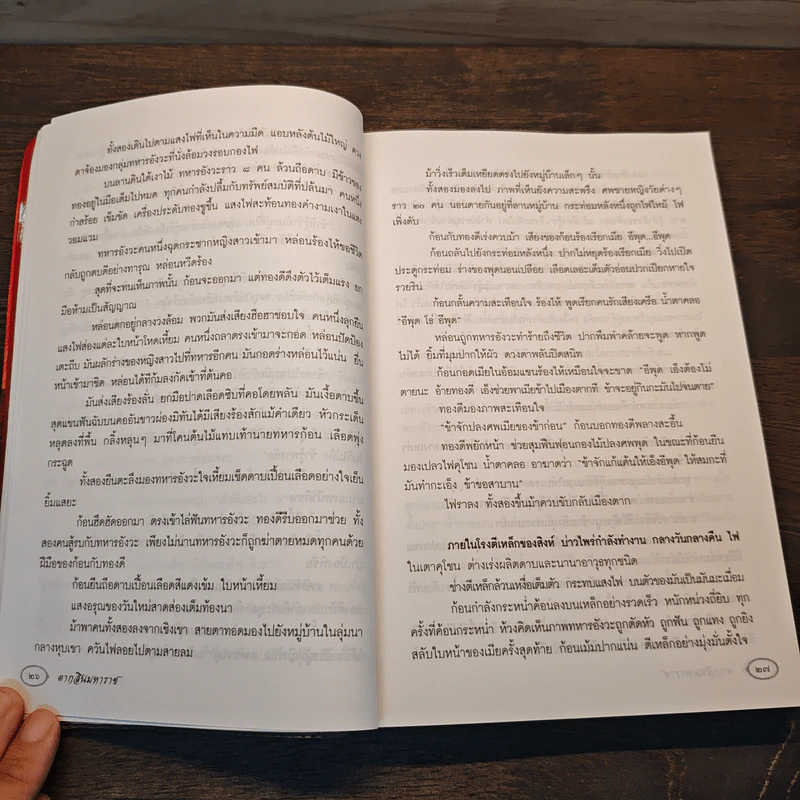 ทั้งสองเดินไปตามแสงไฟที่เห็นในความมืด แอบหลังต้นไม้ใหญ่ ดวง
ตาจ้องมองกลุ่มทหารอังวะที่นั่งล้อมวงรอบกองไฟ
บนลานดินใต้เงาไม้ ทหารอังวะราว ๘ คน ล้วนถือดาบ มีข้าวของ
ทองอยู่ในมือเต็มไปหมด ทุกคนกำลังปลื้มกับทรัพย์สมบัติที่ปล้นมา คนหนึ่ง
กำสร้อย เข็มขัด เครื่องประดับทองชูขึ้น แสงไฟสะท้อนทองคำงามเงาในแสง
วอมแวม
ทหารอังวะคนหนึ่งฉุดกระชากหญิงสาวเข้ามา หล่อนร้องไห้ขอชีวิต
กลับถูกตบตีอย่างทารุณ หล่อนหวีดร้อง
สุดที่จะทนเห็นภาพนั้น ก้อนจะออกมา แต่ทองดีดึงตัวไว้เต็มแรง ยก
มือห้ามเป็นสัญญาณ
หล่อนตกอยู่กลางวงล้อม พวกมันส่งเสียงฮือฮาชอบใจ คนหนึ่งลุกยืน
แสงไฟส่องแต่ละใบหน้าโหดเหี้ยม คนหนึ่งถลาตรงเข้ามาจะกอด หล่อนปัดป้อง
เตะถีบ มันผลักร่างของหญิงสาวไปที่ทหารอีกคน มันกอดร่างหล่อนไว้แน่น ยื่น
หน้าเข้ามาชิด หล่อนได้ทีก้มลงกัดเข้าที่ต้นคอ
มันส่งเสียงร้องลั่น ยกมือปาดเลือดซิบที่คอโดยพลัน มันเงื้อดาบขึ้น
สุดแขนฟันฉับบนคออันขาวผ่องมิทันได้มีเสียงร้องสักแม้คำเดียว หัวกระเด็น
หลุดลงที่พื้น กลิ้งหลุนๆ มาที่โคนต้นไม้แทบเท้านายทหารก้อน เลือดพุ่ง
กระฉูด
ทั้งสองยืนตะลึงมองทหารอังวะใจเหี้ยมเช็ดดาบเปื้อนเลือดอย่างใจเย็น
ยิ้มแสยะ
ก้อนฮึดฮัดออกมา ตรงเข้าไล่ฟันทหารอังวะ ทองดีรีบออกมาช่วย ทั้ง
สองคนสู้รบกับทหารอังวะ เพียงไม่นานทหารอังวะก็ถูกฆ่าตายหมดทุกคนด้วย
ฝีมือของก้อนกับทองดี
ก้อนยืนถือดาบเปื้อนเลือดสีแดงเข้ม ใบหน้าเหี้ยม
แสงอรุณของวันใหม่สาดส่องเต็มท้องนา
ม้าพาคนทั้งสองลงจากเชิงเขา สายตาทอดมองไปยังหมู่บ้านในลุ่มนา
กลางหุบเขา ควันไฟลอยไปตามสายลม
๒๖ ตากสินมหาราช
ม้าวิ่งเร็วเต็มเหยียดตรงไปยังหมู่บ้านเล็กๆ นั้น
ทั้งสองมองลงไป ภาพที่เห็นยังความสะพรึง ศพชายหญิงวัยต่างๆ
ราว ๒๐ คน นอนตายกันอยู่ที่ลานหมู่บ้าน กระท่อมหลังหนึ่งถูกไฟไหม้ ไฟ
เพิ่งดับ
ก้อนกับทองดีเร่งควบม้า เสียงของก้อนร้องเรียกเมีย อีพุด...อีพุด
ก้อนถลันไปยังกระท่อมหลังหนึ่ง ปากไม่หยุดร้องเรียกเมีย วิ่งไปเปิด
ประตูกระท่อม ร่างของพุดนอนเปลือย เลือดเลอะเต็มตัวอ่อนปวกเปียกหายใจ
รวยริน
ก้อนกลั้นความสะเทือนใจ ร้องไห้ พูดเรียกคนรักเสียงเครือ น้ำตาคลอ
“อีพุด โธ่ อีพุด”
หล่อนถูกทหารอังวะทำร้ายถึงชีวิต ปากพึมพำคล้ายจะพูด หากพูด
ไม่ได้ ยิ้มที่มุมปากให้ผัว ดวงตาพลันปิดสนิท
ก้อนกอดเมียในอ้อมแขนร้องไห้เหมือนใจจะขาด “อีพุด เอ็งต้องไม่
ตายนะ อ้ายทองดี เอ็งช่วยพาเมียข้าไปเมืองตากที ข้าจะอยู่กินกะมันไปจนตาย”
ทองดีมองภาพสะเทือนใจ
“ข้าจักปลงศพเมียของข้าก่อน” ก้อนบอกทองดีพลางสะอื้น
ทองดีพยักหน้า ช่วยสุมฟืนฟอนกองไม้ปลงศพพุด ในขณะที่ก้อนยืน
มองเปลวไฟคุโชน น้ำตาคลอ อาฆาตว่า “ข้าจักแก้แค้นให้เอ็งอีพุด ให้สมกะที่
มันทำกะเอ็ง ข้าขอสาบาน”
ไฟราลง ทั้งสองขึ้นม้าควบขับกลับเมืองตาก
ภายในโรงตีเหล็กของสิงห์ บ่าวไพร่กำลังทำงาน กลางวันกลางคืน ไฟ
ในเตาคุโชน ต่างเร่งผลิตดาบและนานาอาวุธทุกชนิด
ช่างตีเหล็กล้วนเหงื่อเต็มตัว กระทบแสงไฟ บนตัวของมันเป็นมันมะเมื่อม
ก้อนกำลังกระหน่ำค้อนลงบนเหล็กอย่างรวดเร็ว หนักหน่วงถี่ยิบ ทุก
ครั้งที่ค้อนกระหน่ำ ห้วงคิดเห็นภาพทหารอังวะถูกตัดหัว ถูกฟัน ถูกแทง ถูกยิง
สลับใบหน้าของเมียครั้งสุดท้าย ก้อนเม้มปากแน่น ตีเหล็กอย่างมุ่งมั่นตั้งใจ
๒๗